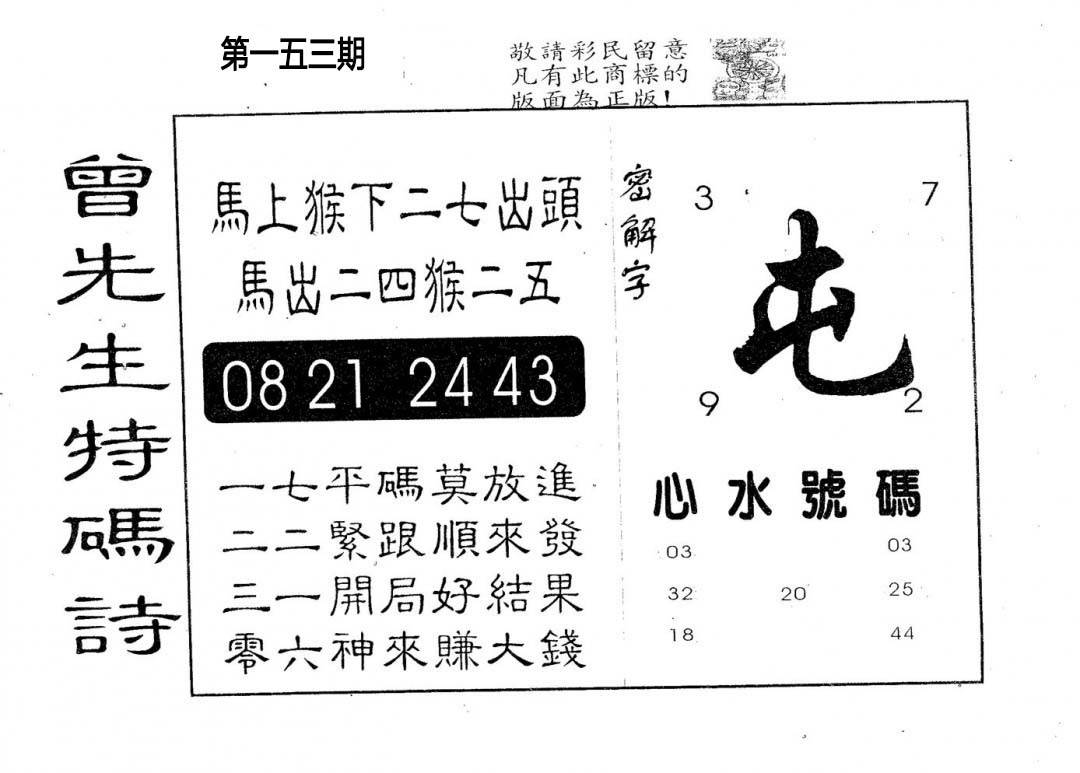 第一五三期
敬請彩民留意
凡有此商標的
版面為正版！
曾先生特碼詩
馬上猴下二七出頭
馬出二四猴二五
08 21 24 43
一七平碼莫放進
二二緊跟順來發
三一開局好結果
零六神來賺大錢
密解字
3 7
屯
9 2
心水號碼
03 03
32 20 25
18 44